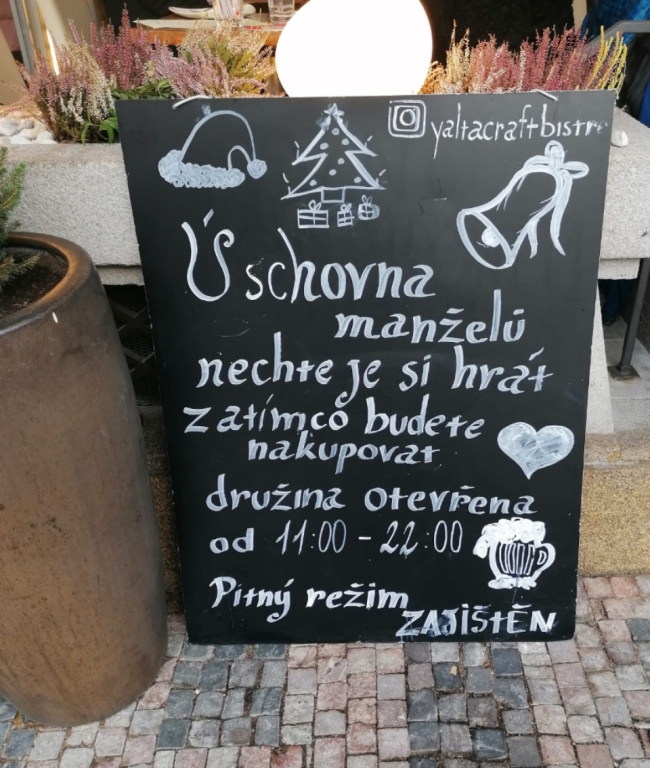 yaltacraftbistro
Úschovna
manželů
nechte je si hrát
zatímco budete
nakupovat
družina otevřena
od 11:00 - 22:00
Pitný režim
ZAJiŠtĚN